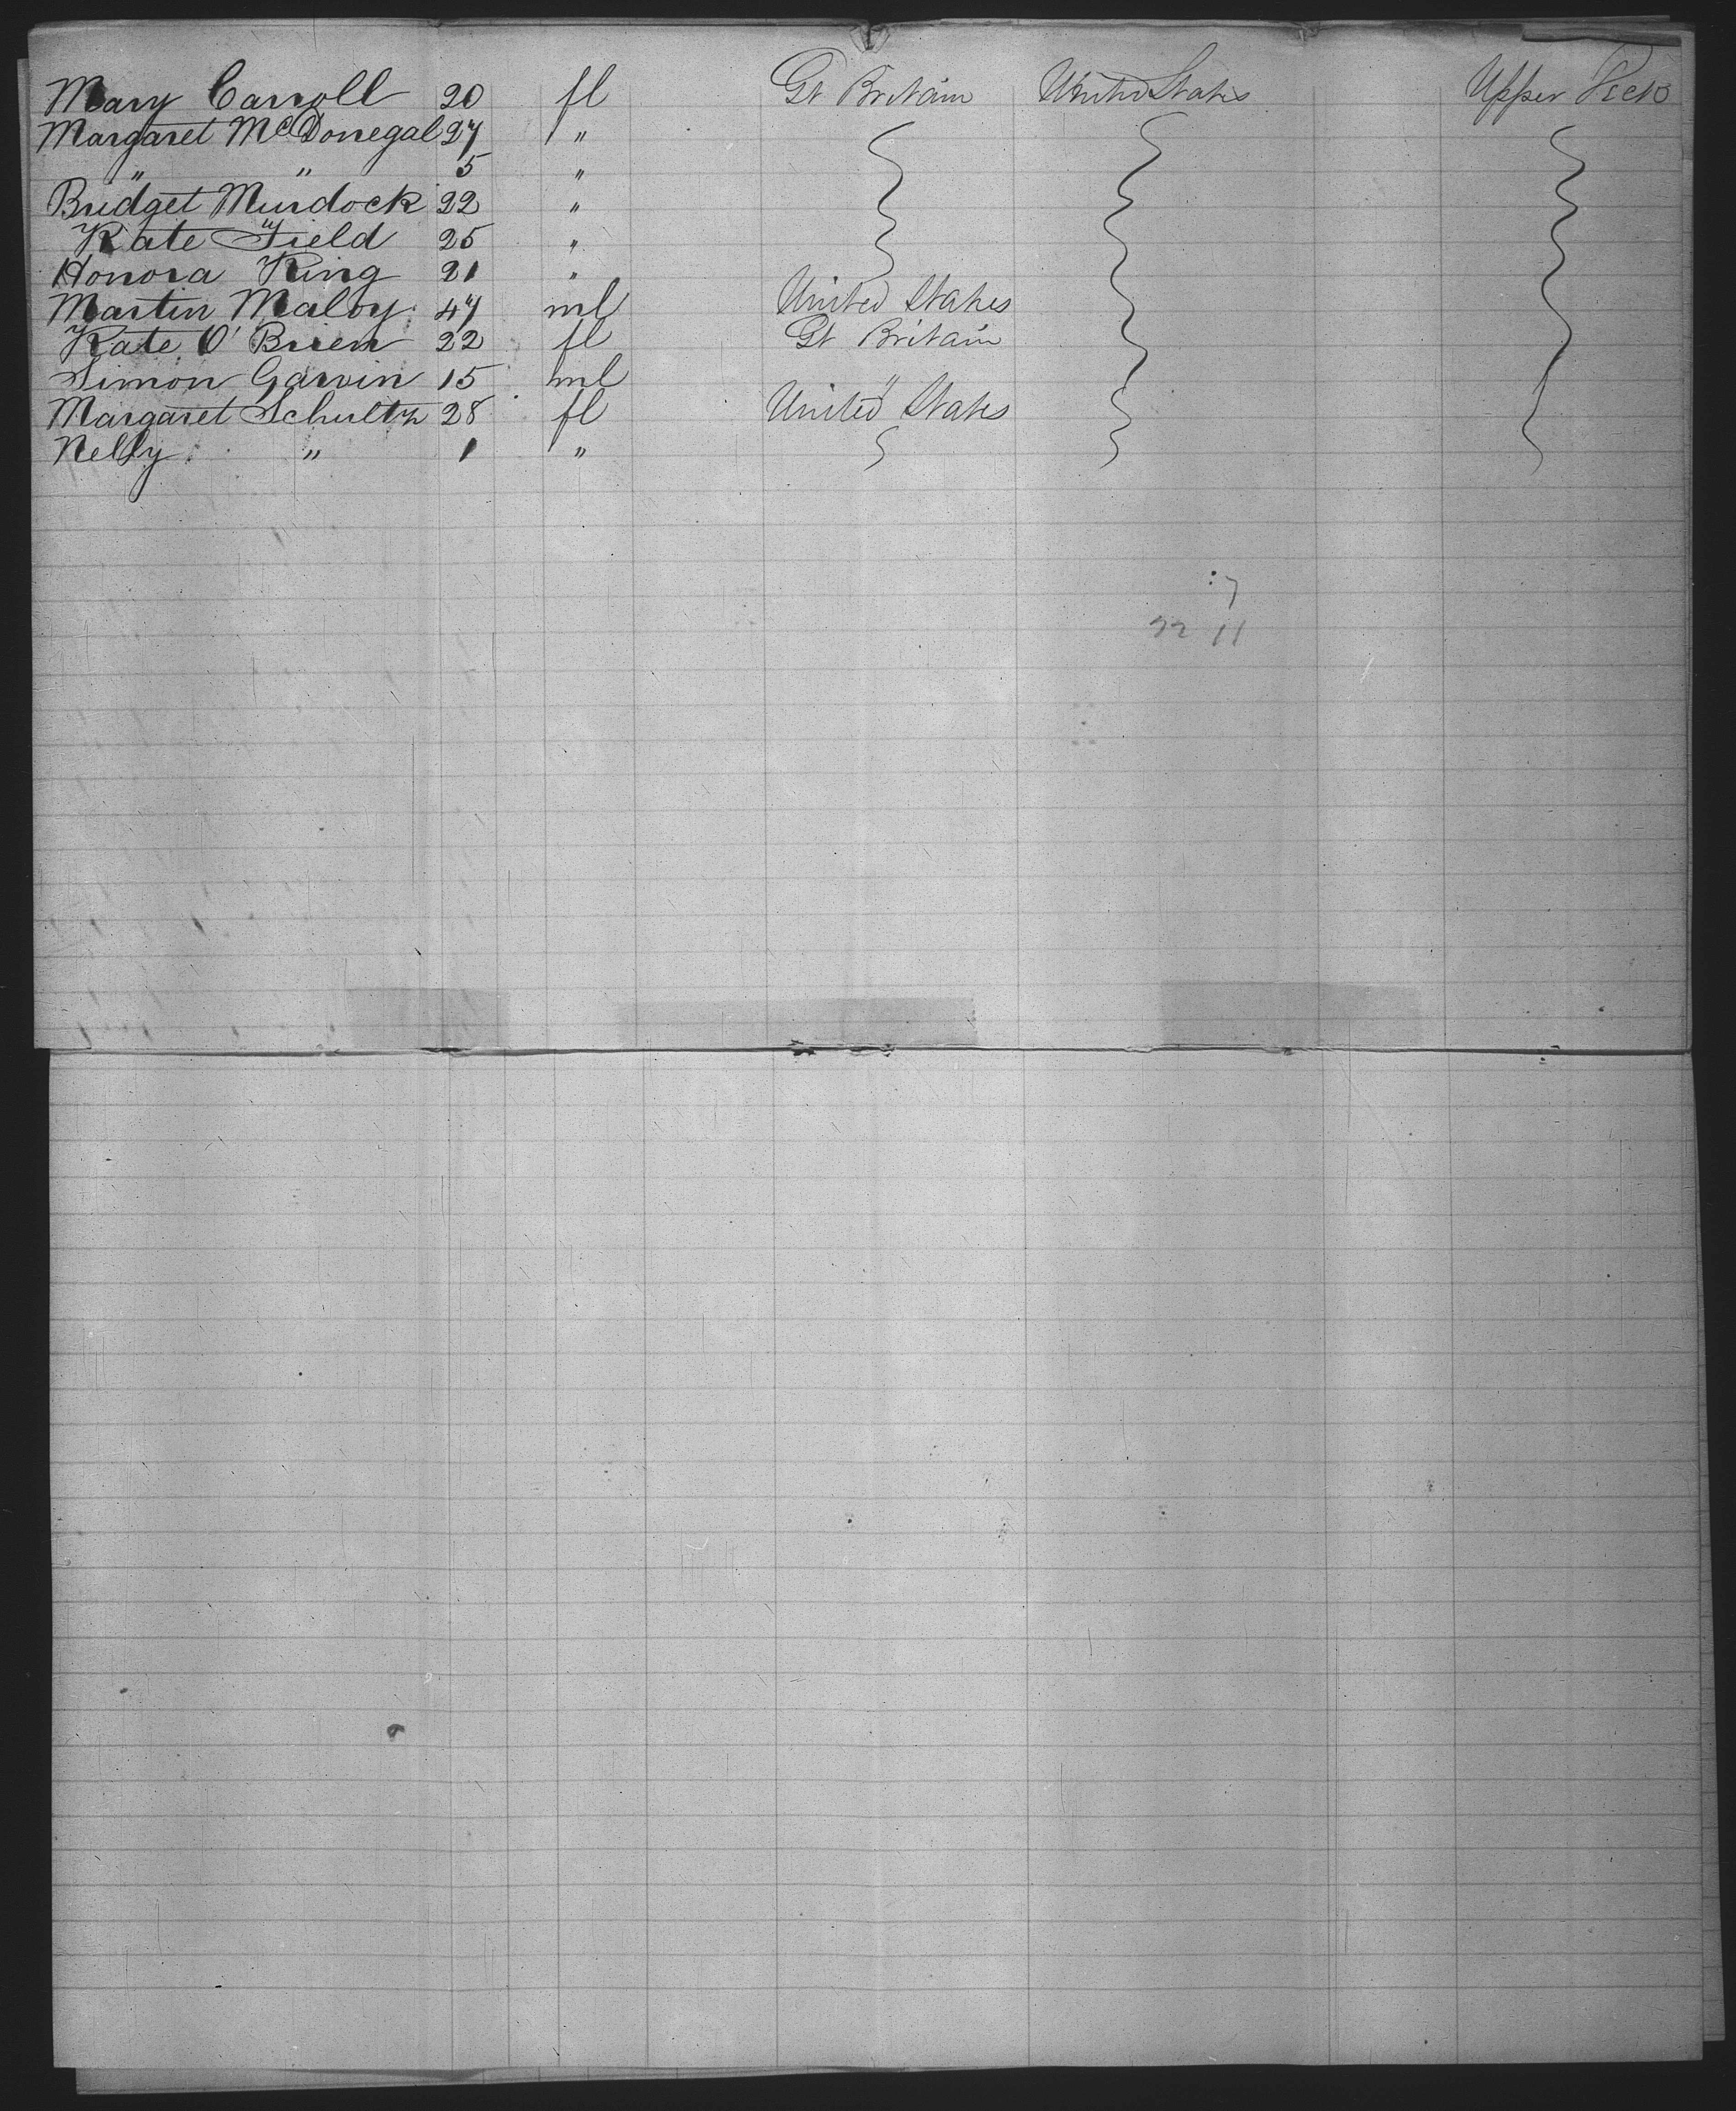 Mary Carroll 20 fl Gt Britain United States Upper Deck
Margaret McDonegal 27 "
" " 5 "
Bridget Murdock 22 "
Kate Field 25 "
Honora King 21 "
Martin Maloy 47 ml United States
Kate O'Brien 22 fl Gt Britain
Simon Garvin 15 ml "
Margaret Schultz 28 fl United States
Nelly " 1 "
22 11